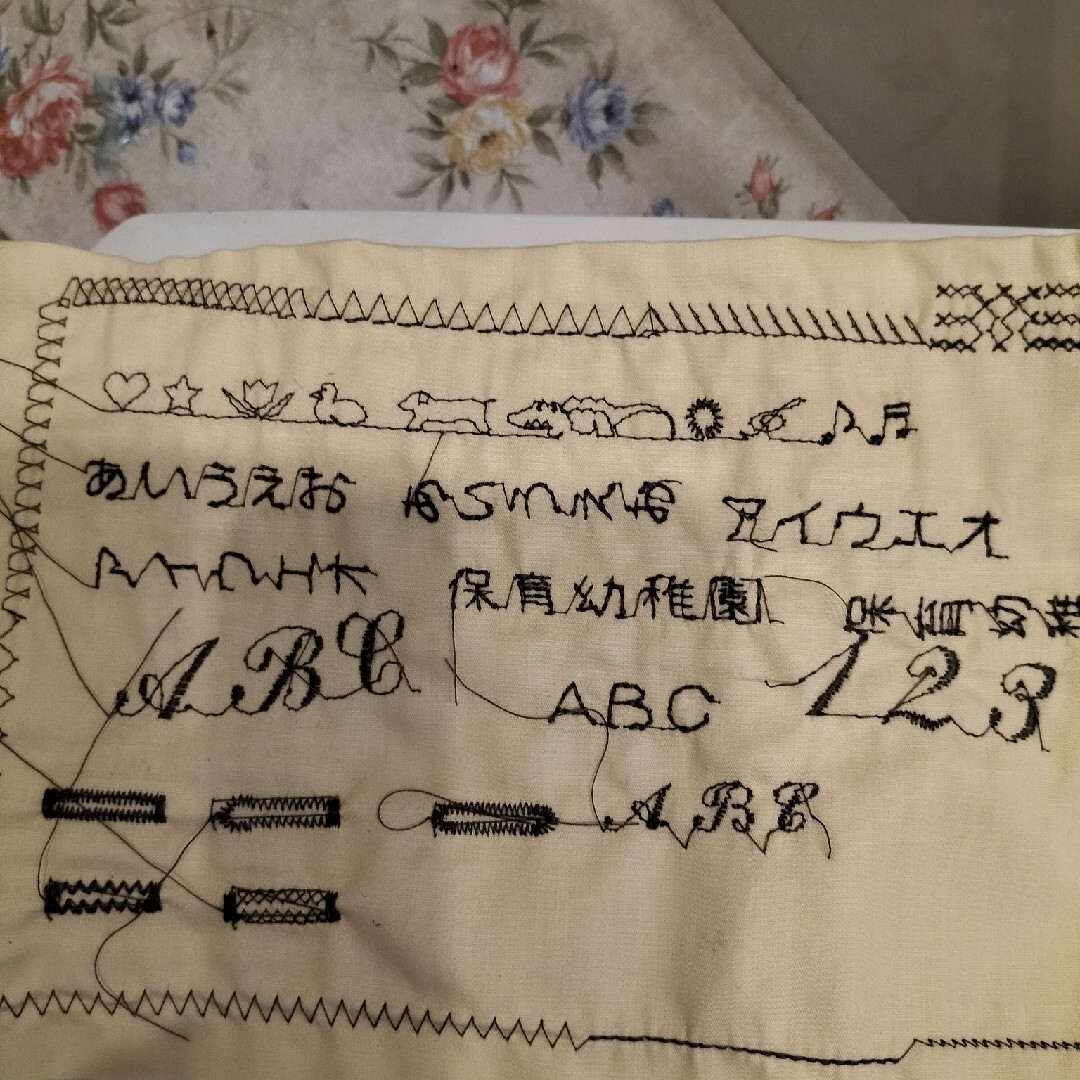 あいうえお
アイウエオ
保育幼稚園
保育幼稚
ABC
ABC
123
ABC